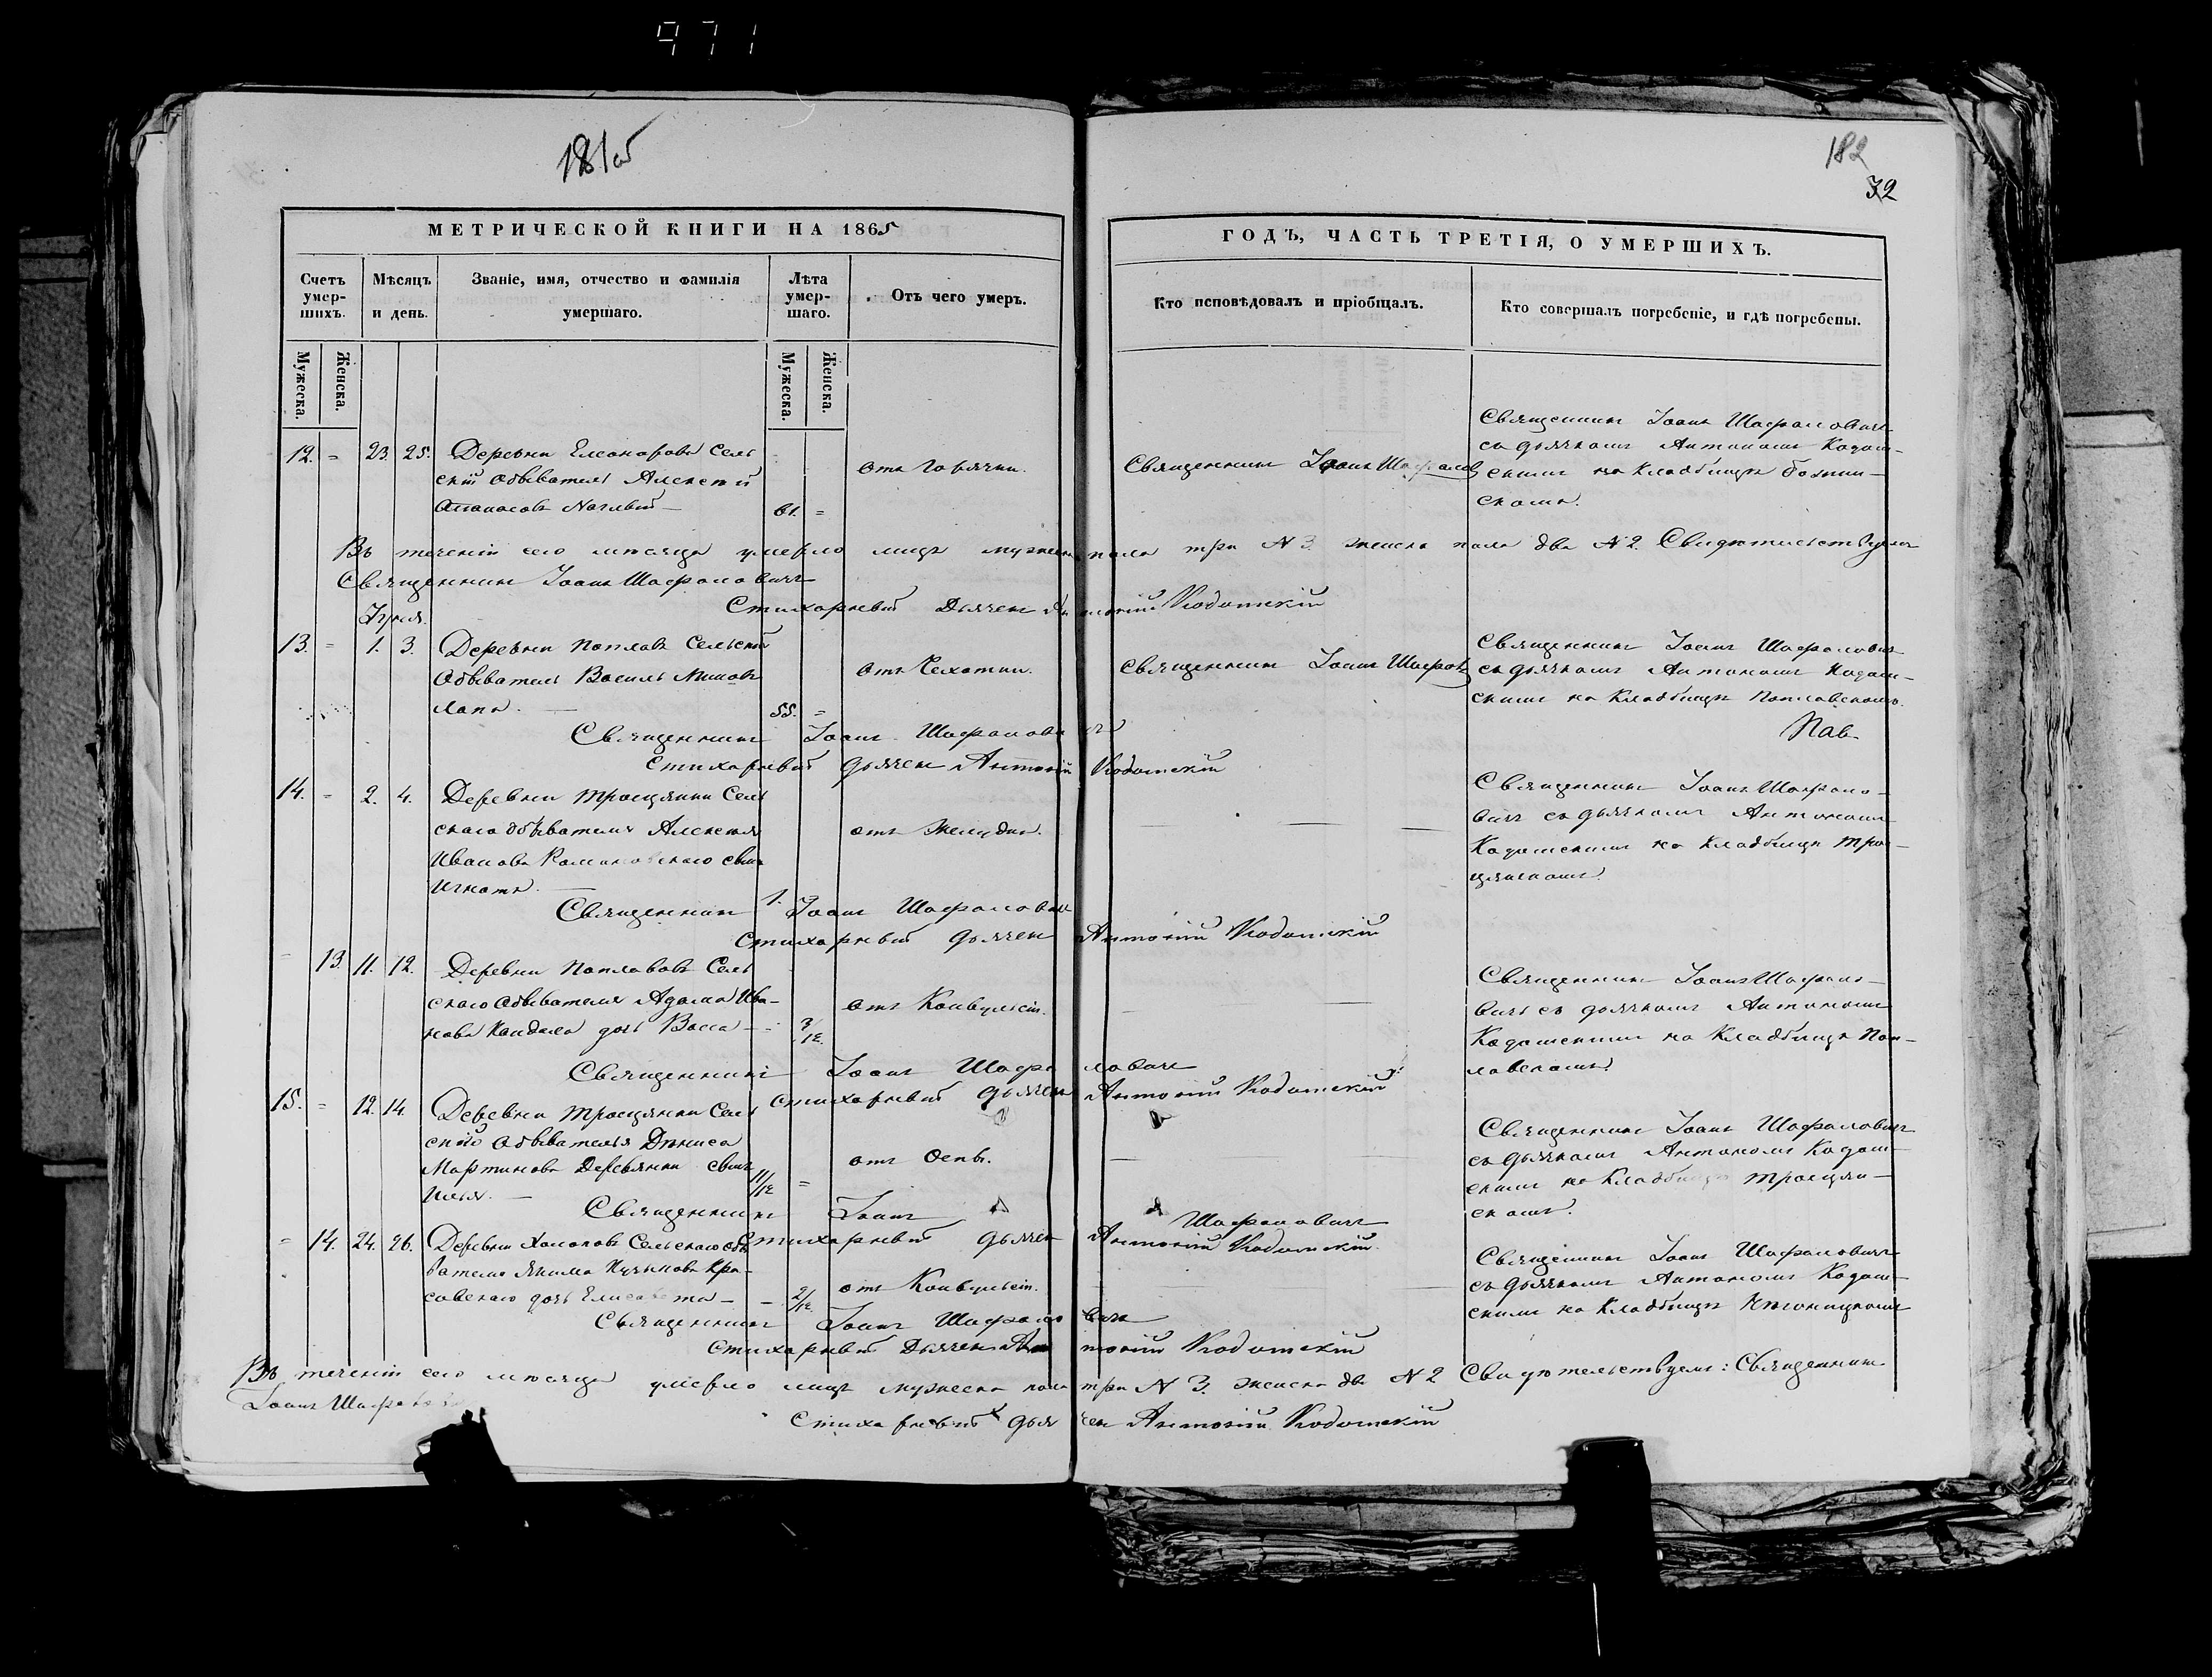 971
181об
182
32
МЕТРИЧЕСКОЙ КНИГИ НА 1865
ГОДЪ, ЧАСТЬ ТРЕТІЯ, О УМЕРШИХЪ.
Счетъ умер-шихъ.
Мѣсяцъ и день.
Званіе, имя, отчество и фамилія умершаго.
Лѣта умер-шаго.
Отъ чего умеръ.
Кто исповѣдовалъ и пріобщалъ.
Кто совершалъ погребеніе, и гдѣ погребены.
Мужеска.
Женска.
Мужеска.
Женска.
12. = 23. 25.
Деревни Елеонорова Сель
скій обыватель Алексѣй
61. =
отъ Горячки.
Священникъ Іоанн
Священникъ Іоаннъ Шафаловичъ
съ дьячкомъ Антономъ Кадом-
скимъ на кладбищѣ
скомъ.
Въ теченіи сего мѣсяца умерло лицъ мужеска пола три N 3. женска пола два N 2. Свидѣтельствуемъ
Священникъ Іоаннъ Шафаловичъ
Стихарный Дьячекъ Антоній Кодомскій
13. = 1. 3.
Деревни Поплавъ Сельскій
Обыватель Василь
Лапа.
55. =
отъ Сухотки.
Священникъ Іоаннъ
Священникъ Іоаннъ Шафаловичъ
съ дьячкомъ Антономъ Кадом-
скимъ на Кладбищѣ Поплавскомъ.
Священникъ Іоаннъ Шафаловичъ
Стихарный дьячекъ Антоній Кодомскій
14. = 2. 4.
Деревни Тросцянки Сель
скаго обывателя Алексѣя
Иванова сынъ
Игнатъ.
1.
отъ желудка.
Священникъ Іоаннъ Шафало-
вичъ съ дьячкомъ Антономъ
Кадомскимъ на Кладбищѣ Трос-
цянскомъ.
Священникъ Іоаннъ Шафаловичъ
Стихарный дьячекъ Антоній Кодомскій
13. 11. 12.
Деревни Поплавовъ Сель
скаго обывателя Адама Ива-
нова дочь Васса
/12.
отъ Конвульсіи.
Священникъ Іоаннъ Шафало-
вичъ съ дьячкомъ Антономъ
Кадомскимъ на Кладбищѣ Поп-
лавскомъ.
Священникъ Іоаннъ Шафаловичъ
Стихарный дьячекъ Антоній Кодомскій
15. = 12. 14.
Деревни Тросцянки Сель
скаго обывателя Дениса
Мартинова Деревянки сынъ
Илья.
11/12 =
отъ Оспы.
Священникъ Іоаннъ Шафаловичъ
съ дьячкомъ Антономъ Кадом-
скимъ на Кладбищѣ Тросцян-
скомъ.
Священникъ Іоаннъ Шафаловичъ
Стихарный дьячекъ Антоній Кодомскій
= 14. 24. 26.
Деревни Сельскаго обы
вателя Якима
дочь Елисавета
2/12.
отъ Конвульсіи.
Священникъ Іоаннъ Шафаловичъ
съ дьячкомъ Антономъ Кадом-
скимъ на Кладбищѣ
Священникъ Іоаннъ Шафаловичъ
Стихарный Дьячекъ Антоній Кодомскій
Въ теченіи сего мѣсяца умерло лицъ мужеска пола три N 3. женска два N 2 Свидѣтельствуемъ: Священникъ
Іоаннъ Шафаловичъ
Стихарный дьячекъ Антоній Кодомскій